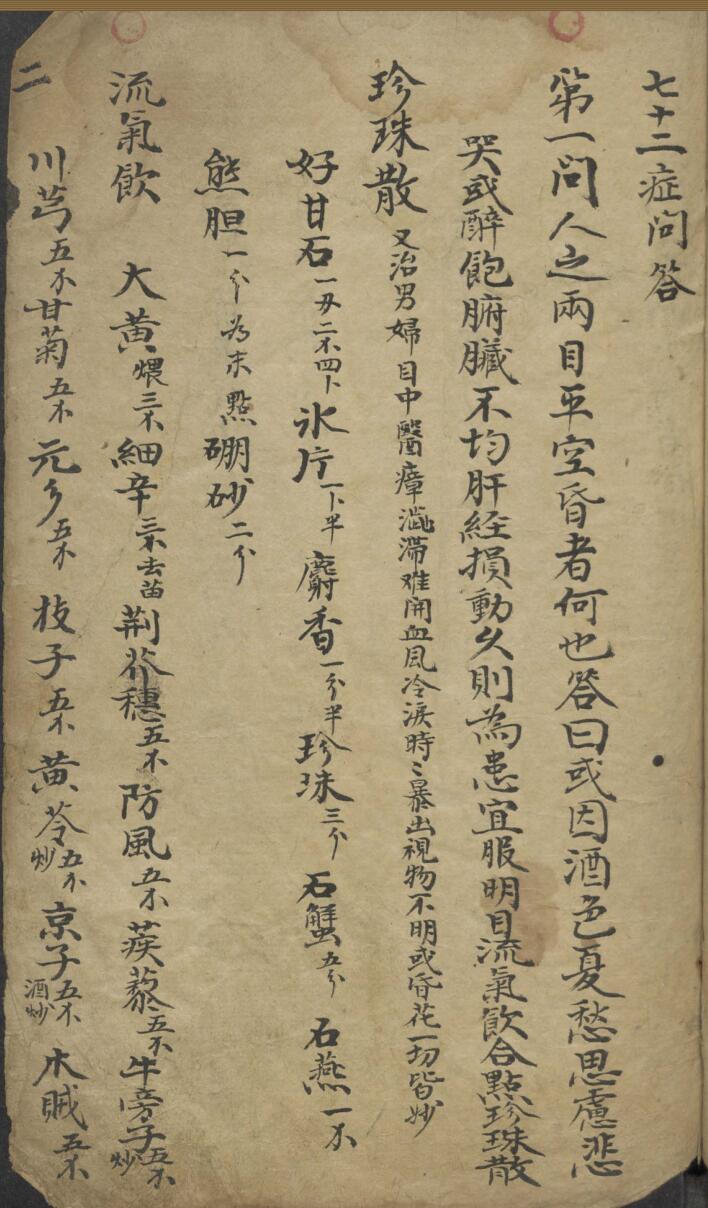 七十二症問答
第一問人之兩目平空昏者何也答曰或因酒色夏愁思慮悲
哭或醉飽腑臟不均肝経損動久則為患宜服明目流氣飲合點珍珠散
珍珠散 又治男婦目中醫瘴澁滞难開血風冷淚時〻暴出視物不明或昏花一切皆妙
好甘石一刄二不四卜 氷片一卜半 麝香一分半 珍珠三分 石蟹五分 石燕一不
熊胆一分 為末點 硼砂二分
流氣飲 大黄煨三不 細辛三不去苗 荆芥穗五不 防風五不 蒺藜五不 牛旁子五不炒
川芎五不 甘菊五不 元参五不 枝子五不 黄芩五不炒 京子五不酒炒 木賊五不
二